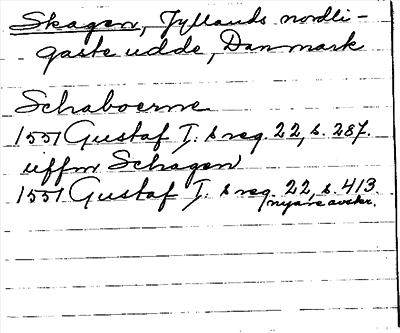 Skagen, Jyllands nordli-
gaste udde, Danmark
Schaboerne
1551 Gustaf I:s reg. 22, s. 287.
uffm Schagen
1551 Gustaf I:s reg. 22, s. 413.
nyare avskr.